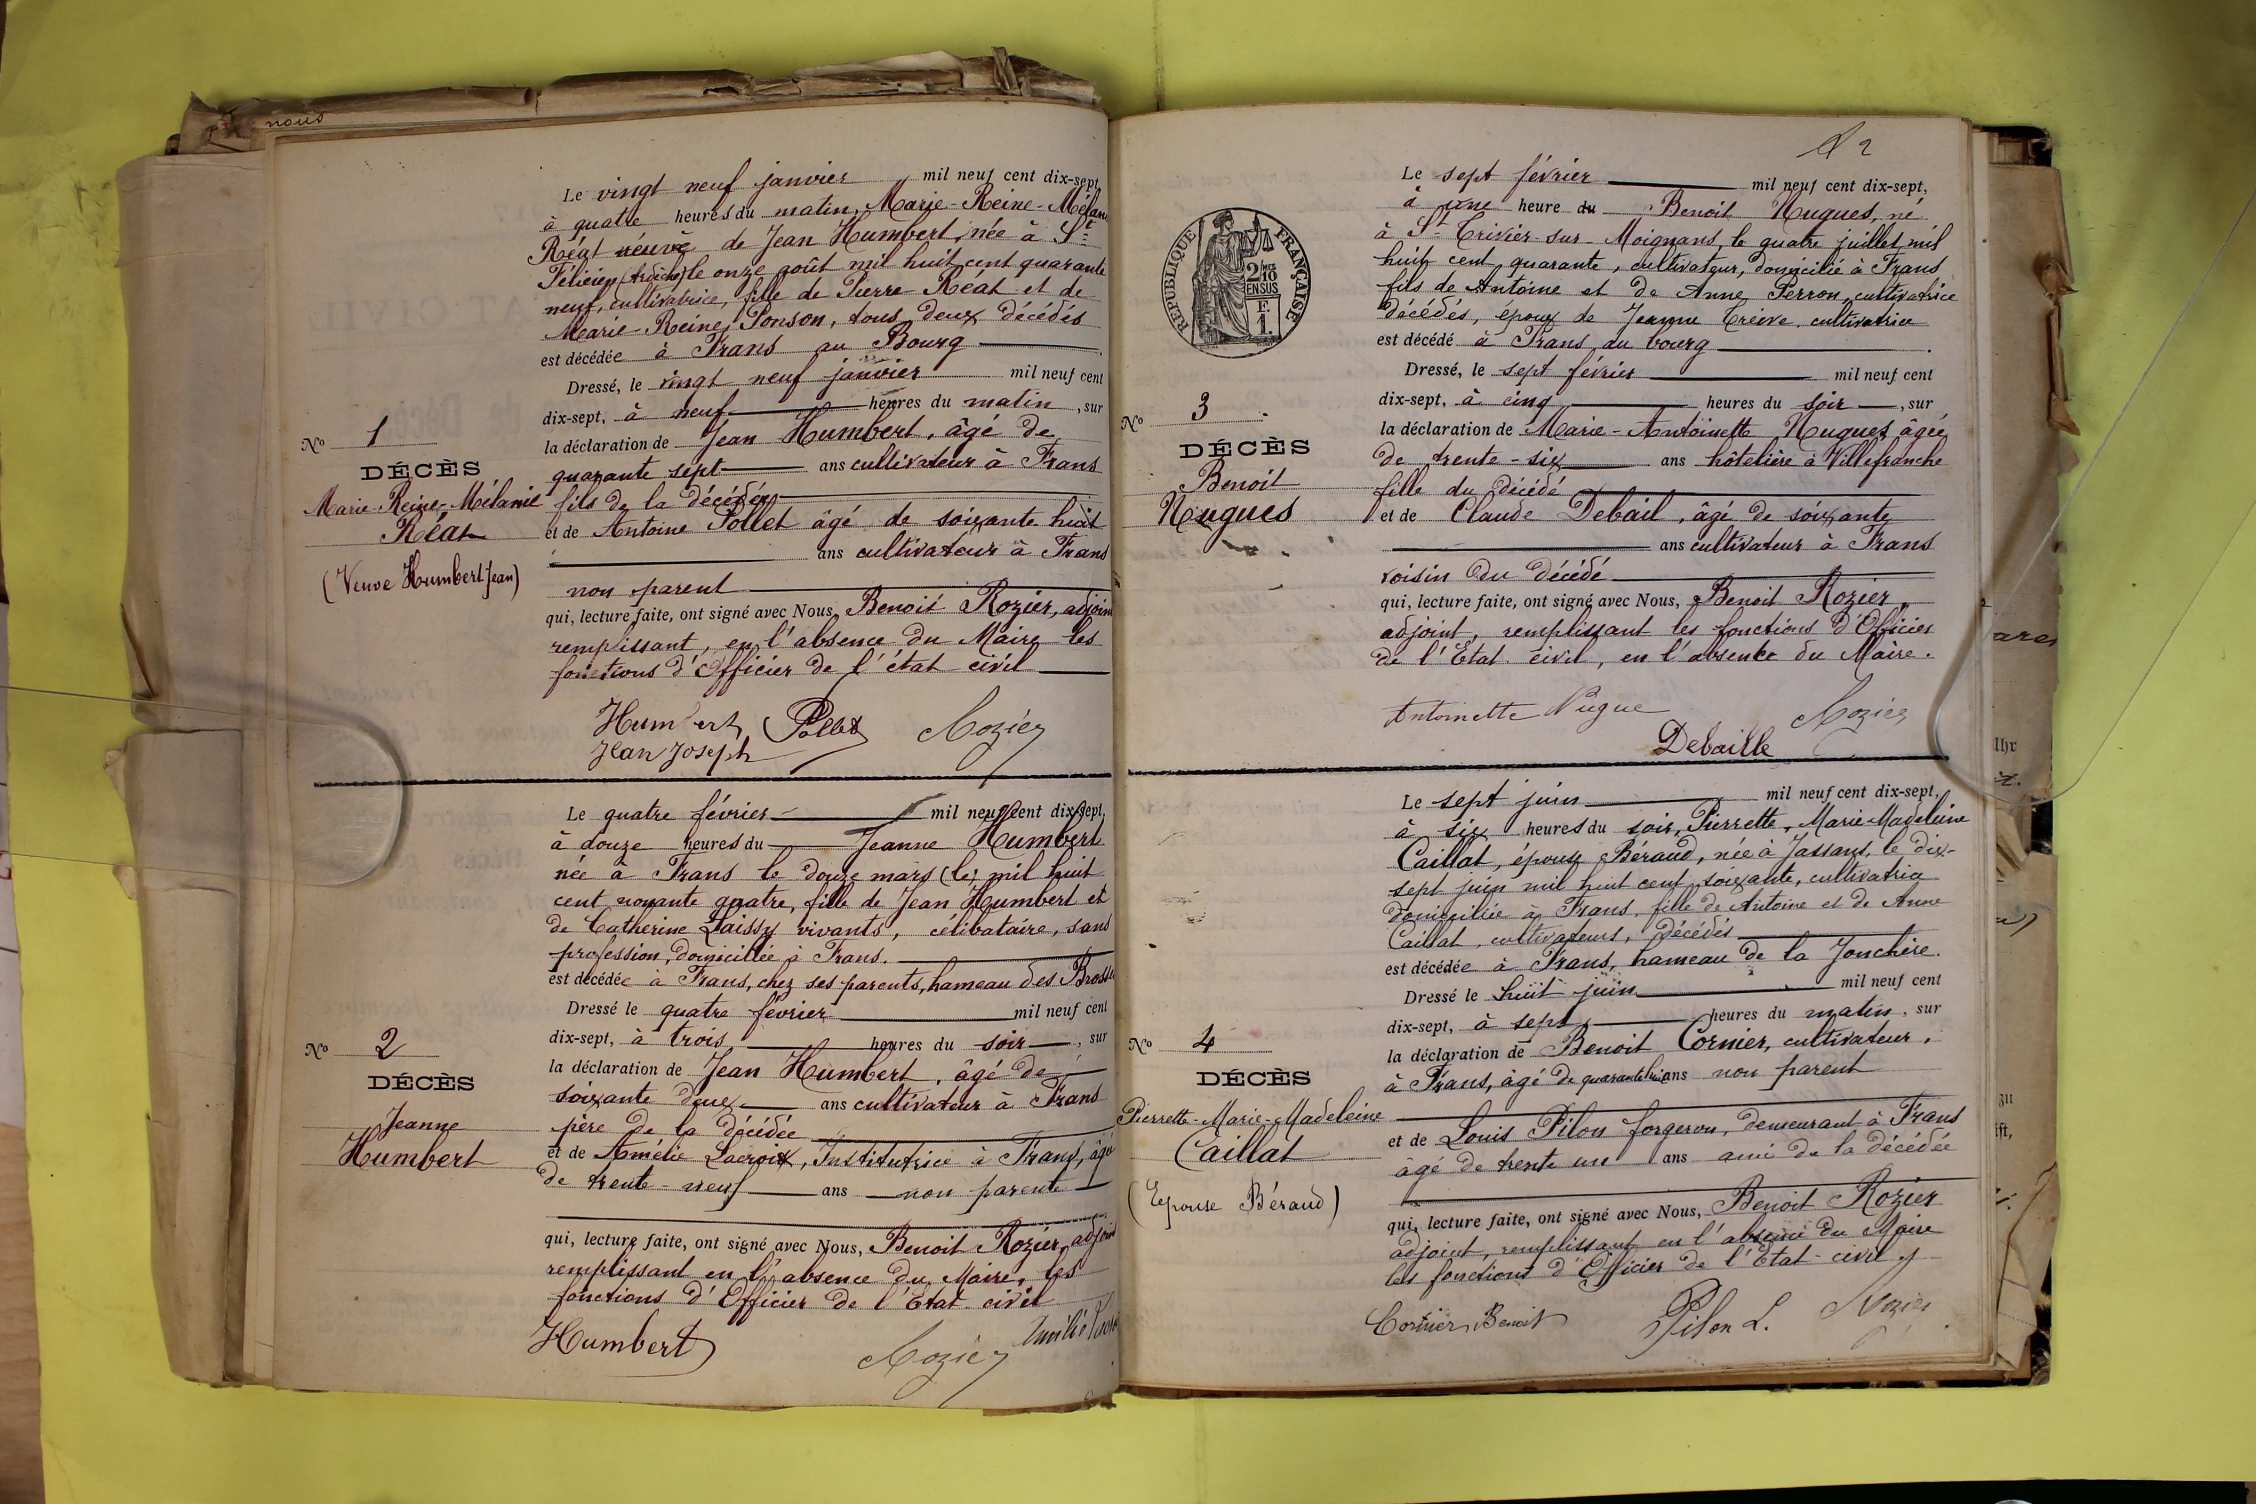 nous
Le vingt neuf janvier mil neuf cent dix-sept
à quatre heures du matin, Marie-Reine-Mélan
Réat veuve de Jean Humbert, née à St
Félicien (Ardèche) le onze août mil huit cent quarante
neuf, cultivatrice, fille de Pierre Réat et de
Marie-Reine Ponson, tous deux décédés
est décédée à Trans au Bourg
Dressé, le vingt neuf janvier mil neuf cent
dix-sept, à neuf heures du matin, sur
la déclaration de Jean Humbert, âgé de
quarante sept ans cultivateur à Trans
fils de la décédée
et de Antoine Pollet âgé de soixante huit
ans cultivateur à Trans
non parent
qui, lecture faite, ont signé avec Nous, Benoit Rozier, adjoin
remplissant, en l'absence du Maire les
fonctions d'Officier de l'état civil
Humbert Pollet Rozier
Jean Joseph
No 1
DÉCÈS
Marie-Reine-Mélanie
Réat
(Veuve Humbert Jean)
Le quatre février mil neuf cent dix-sept,
à douze heures du Jeanne Humbert
née à Trans le douze mars (le) mil huit
cent nonante quatre, fille de Jean Humbert et
de Catherine Laissy vivants, célibataire, sans
profession, domiciliée à Trans.
est décédée à Trans, chez ses parents, hameau des Bross
Dressé le quatre février mil neuf cent
dix-sept, à trois heures du soir, sur
la déclaration de Jean Humbert, âgé de
soixante deux ans cultivateur à Trans
père de la décédée
et de Amélie Lacroix, Institutrice à Trans, âgé
de trente-neuf ans non parente
qui, lecture faite, ont signé avec Nous, Benoit Rozier, adjoin
remplissant en l'absence du Maire, les
fonctions d'Officier de l'Etat civil
Humbert Rozier
No 2
DÉCÈS
Jeanne
Humbert
2
Le sept février mil neuf cent dix-sept,
à une heure du Benoit Nugues, né
à St Trivier-sur-Moignans, le quatre juillet mil
huit cent quarante, cultivateur, domicilié à Trans
fils de Antoine et de Anne Perron, cultivatrice
décédés, époux de Jeanne Trêive, cultivatrice
est décédé à Trans, au bourg
Dressé, le sept février mil neuf cent
dix-sept, à cinq heures du soir, sur
la déclaration de Marie-Antoinette Nugues âgée
de trente-six ans hôtelière à Villefranche
fille du décédé
et de Claude Debail, âgé de soixante
ans cultivateur à Trans
voisin du décédé
qui, lecture faite, ont signé avec Nous, Benoit Rozier,
adjoint, remplissant les fonctions d'Officier
de l'Etat civil, en l'absence du Maire.
Antoinette Nugue Rozier
Debaille
RÉPUBLIQUE FRANÇAISE
2/10mes
EN SUS
F.
1.
No 3
DÉCÈS
Benoit
Nugues
Le sept juin mil neuf cent dix-sept,
à six heures du soir, Pierrette, Marie Madeleine
Caillat, épouse Béraud, née à Jassans, le dix-
sept juin mil huit cent soixante, cultivatrice
domiciliée à Trans, fille de Antoine et de Anne
Caillat, cultivateurs, décédés
est décédée à Trans, hameau de la Jonchère.
Dressé le huit juin mil neuf cent
dix-sept, à sept heures du matin, sur
la déclaration de Benoit Cornier, cultivateur,
à Trans, âgé de quarante huit ans non parent
et de Louis Pilon forgeron, demeurant à Trans
âgé de trente un ans ami de la décédée
qui, lecture faite, ont signé avec Nous, Benoit Rozier
adjoint, remplissant en l'absence du Maire
les fonctions d'Officier de l'Etat-civil
Cornier Benoit Pilon L. Rozier
No 4
DÉCÈS
Pierrette-Marie-Madeleine
Caillat
(Epouse Béraud)